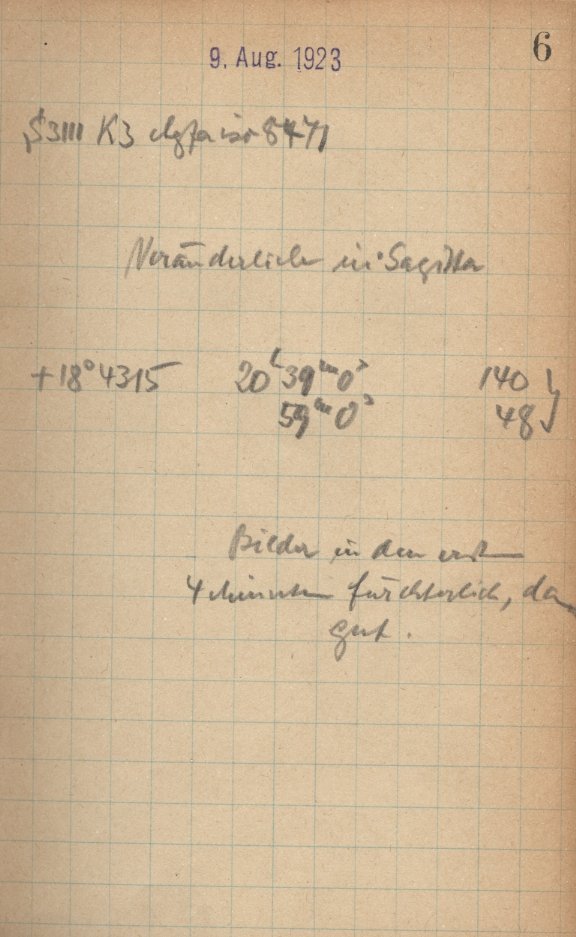 9. Aug. 1923
6
S3111 K3 Agfa iso 8471
Veränderliche in Sagitta
+18°4315 20ʰ 39ᵐ 0ˢ 140
59ᵐ 0ˢ 48
Bilder in den ersten
4 Minuten fürchterlich, dann
gut.